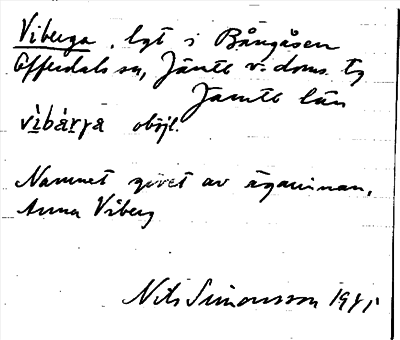 Viberga, lgt i Bångåsen
Offerdals sn, Jämtl v. doms. tg
Jämtl län
vìbárja oböjl.
Namnet givet av ägarinnan,
Anna Viberg
Nils Simonsson 1941